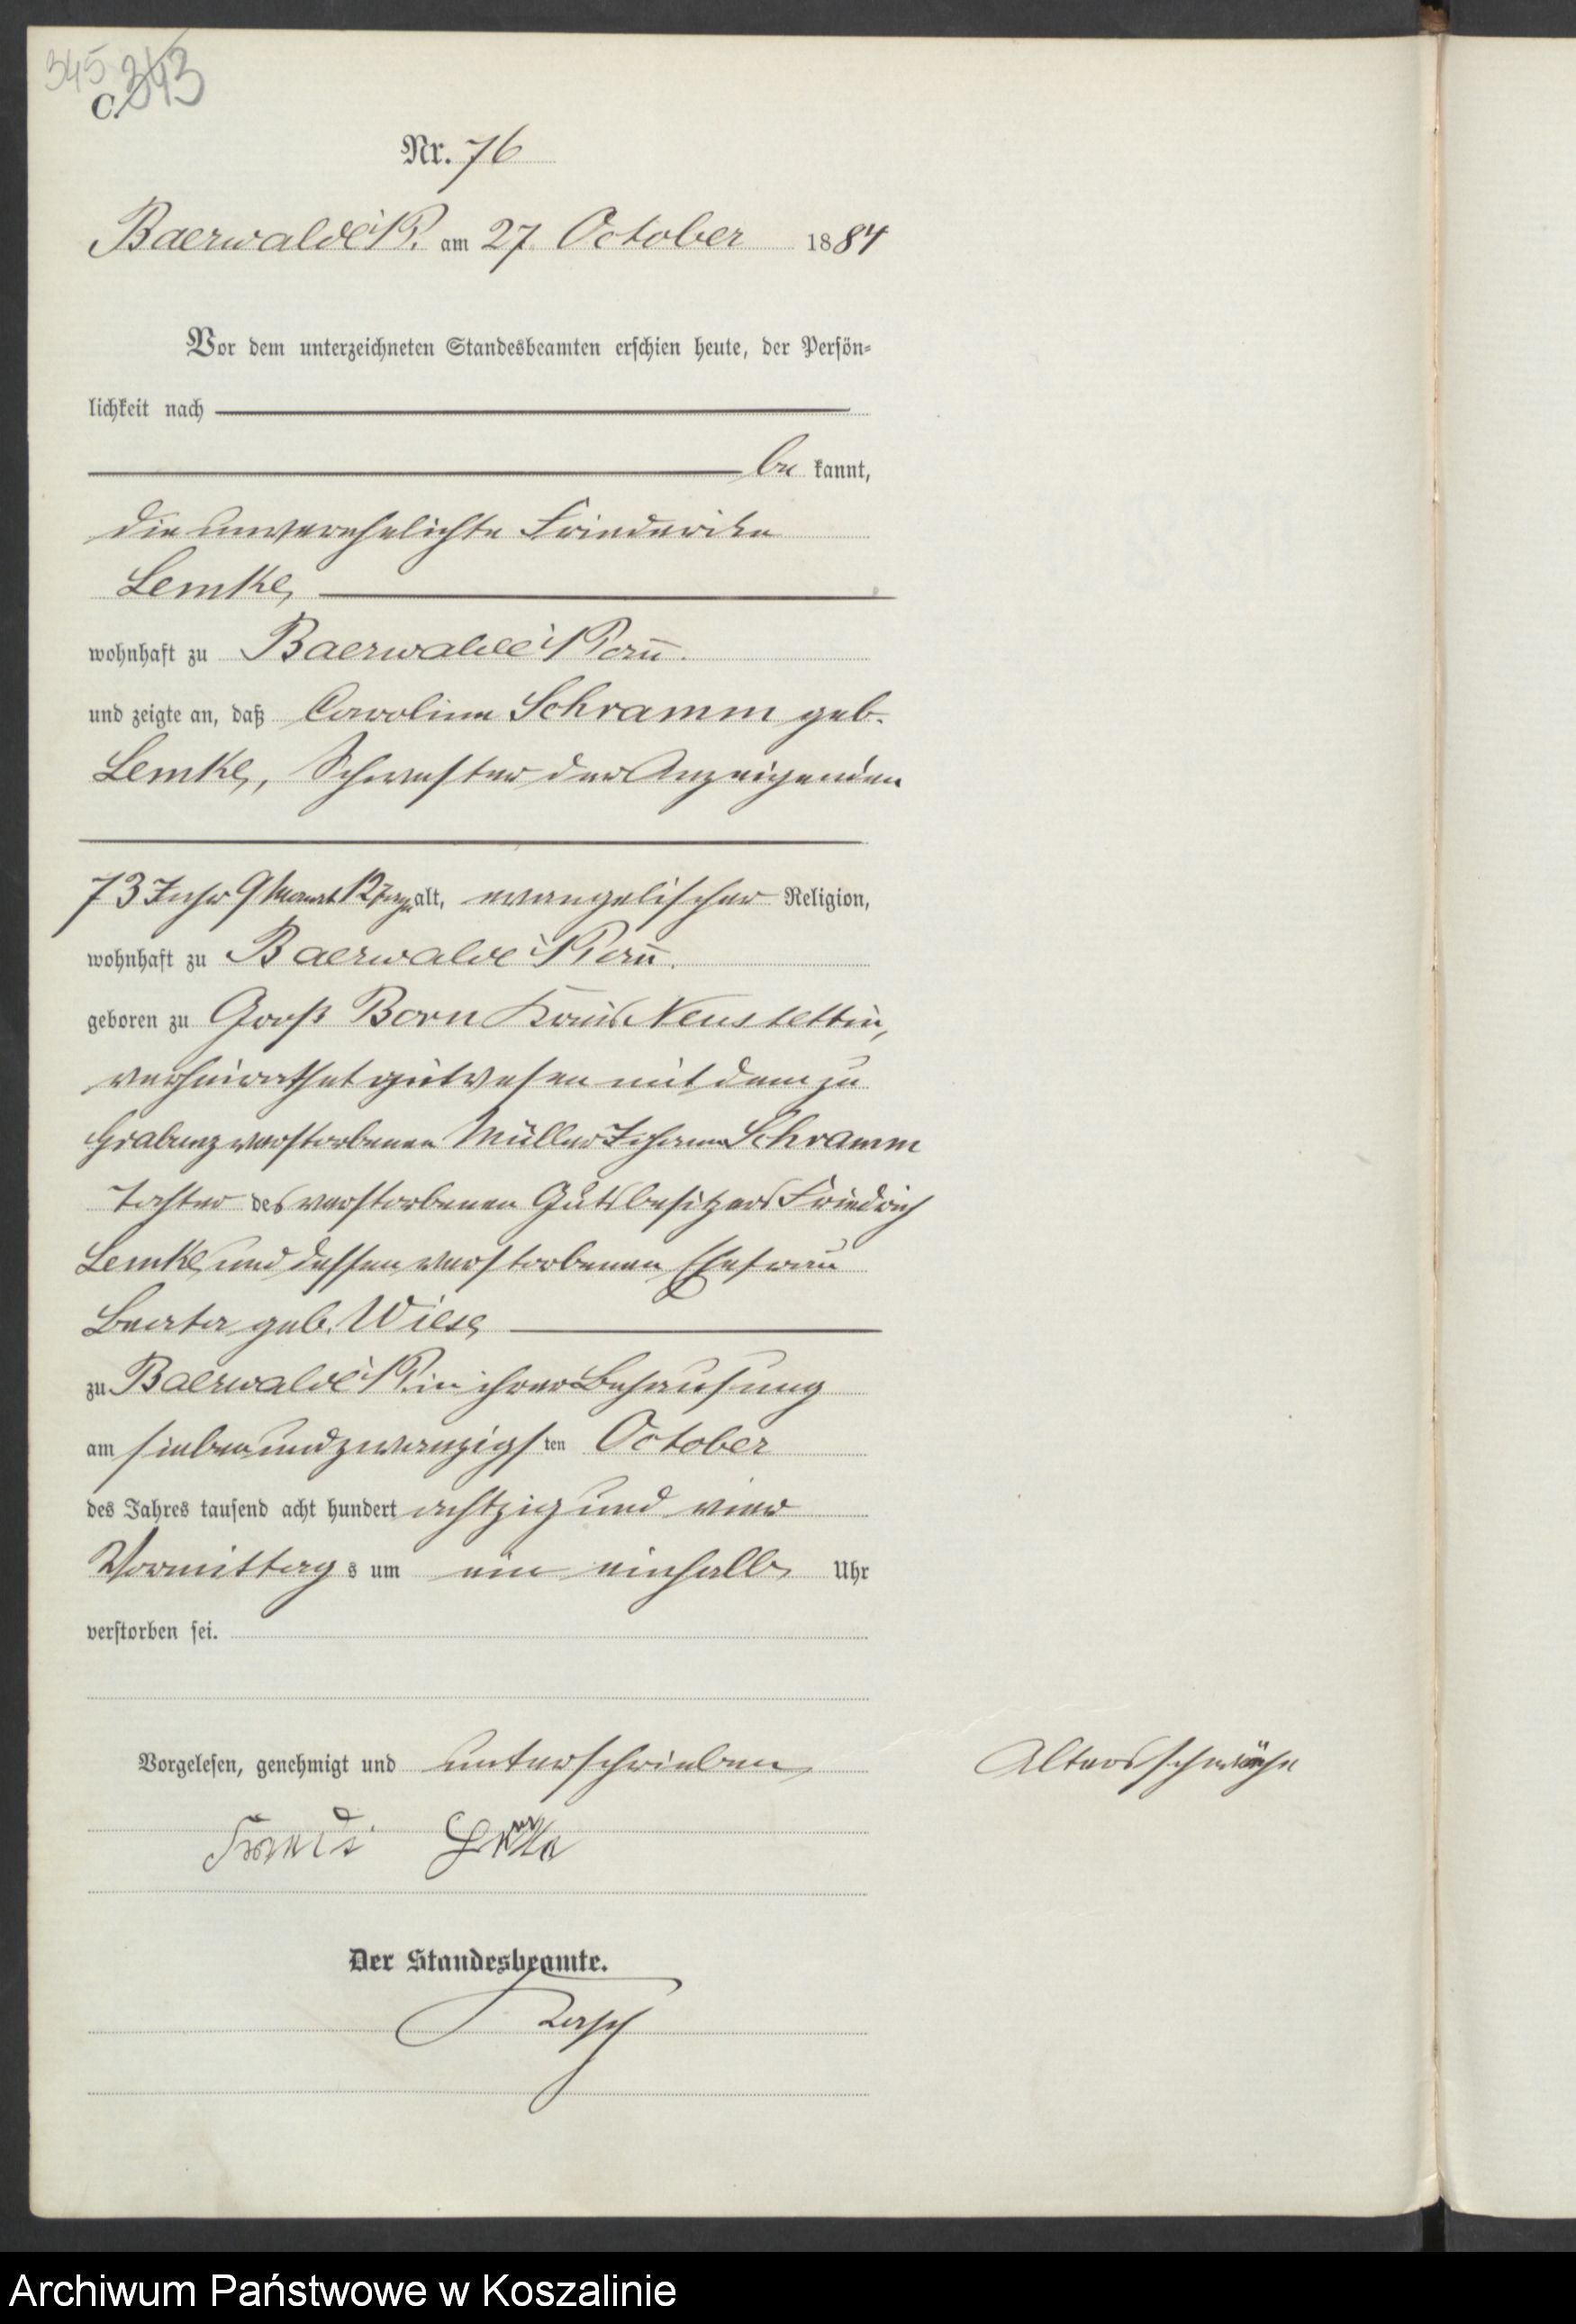 345 343
C.
Nr. 76
Baerwalde i/P. am 27 October 1884
Vor dem unterzeichneten Standesbeamten erschien heute, der Persön-
lichkeit nach
be kannt,
die unverehelichte Friederike
Lemke,
wohnhaft zu Baerwalde i/Pom̅.
und zeigte an, daß Caroline Schramm geb.
Lemke, Schwester der Anzeigenden
73 Jahr 9 Monat 12 Tage alt, evangelischer Religion,
wohnhaft zu Baerwalde i/Pom̅.
geboren zu Groß Born Kreis Neustettin,
verheirathet gewesen mit dem zu
verstorbenen Müller Johann Schramm
Tochter des verstorbenen Gutsbesitzers Friedrich
Lemke und dessen verstorbenen Ehefrau
Beata geb. Wiese
zu Baerwalde i/P. in ihrer Behausung
am siebenundzwanzigsten October
des Jahres tausend acht hundert achtzig und vier
Vormittags um ein einhalb Uhr
verstorben sei.
Vorgelesen, genehmigt und unterschrieben
Altersschwäche
Der Standesbeamte.
Archiwum Państwowe w Koszalinie